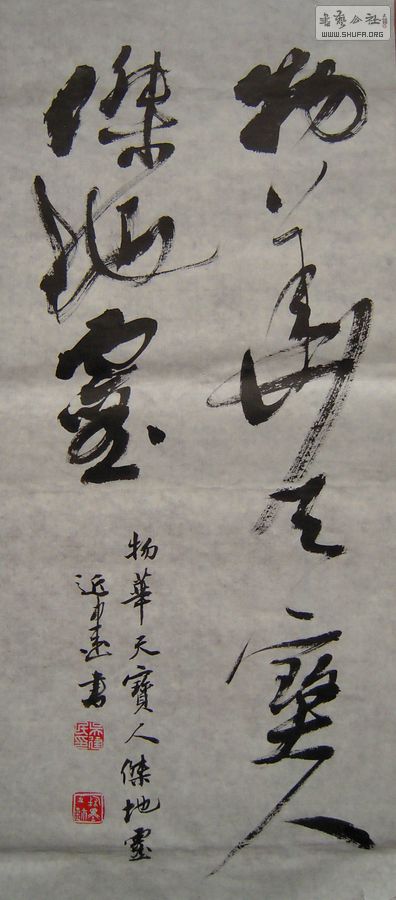 物華天寶人
傑地靈
物華天寶人傑地靈
書
書藝公社
WWW.SHUFA.ORG